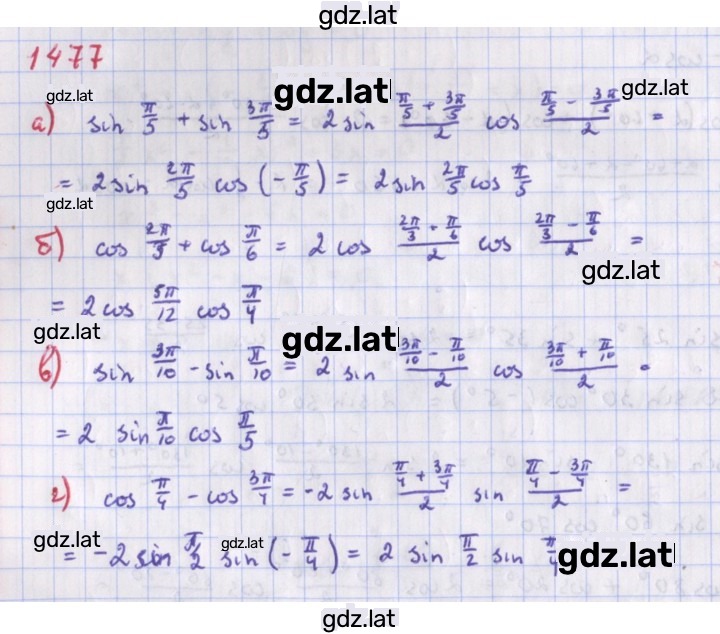 gdz.lat
1477
gdz.lat gdz.lat gdz.lat
а) sin π/5 + sin 3π/5 = 2 sin (π/5 + 3π/5)/2 cos (π/5 - 3π/5)/2 =
= 2 sin 2π/5 cos (- π/5) = 2 sin 2π/5 cos π/5
gdz.lat
б) cos 2π/3 + cos π/6 = 2 cos (2π/3 + π/6)/2 cos (2π/3 - π/6)/2 =
gdz.lat
= 2 cos 5π/12 cos π/4
gdz.lat gdz.lat
в) sin 3π/10 - sin π/10 = 2 sin (3π/10 - π/10)/2 cos (3π/10 + π/10)/2 =
= 2 sin π/10 cos π/5
г) cos π/4 - cos 3π/4 = -2 sin (π/4 + 3π/4)/2 sin (π/4 - 3π/4)/2 =
gdz.lat gdz.lat gdz.lat
= -2 sin π/2 sin (- π/4) = 2 sin π/2 sin π/4
gdz.lat